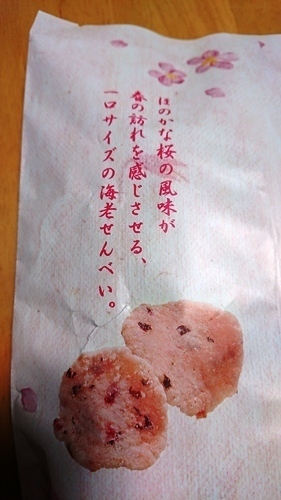 ほのかな桜の風味が
春の訪れを感じさせる、
一口サイズの海老せんべい。